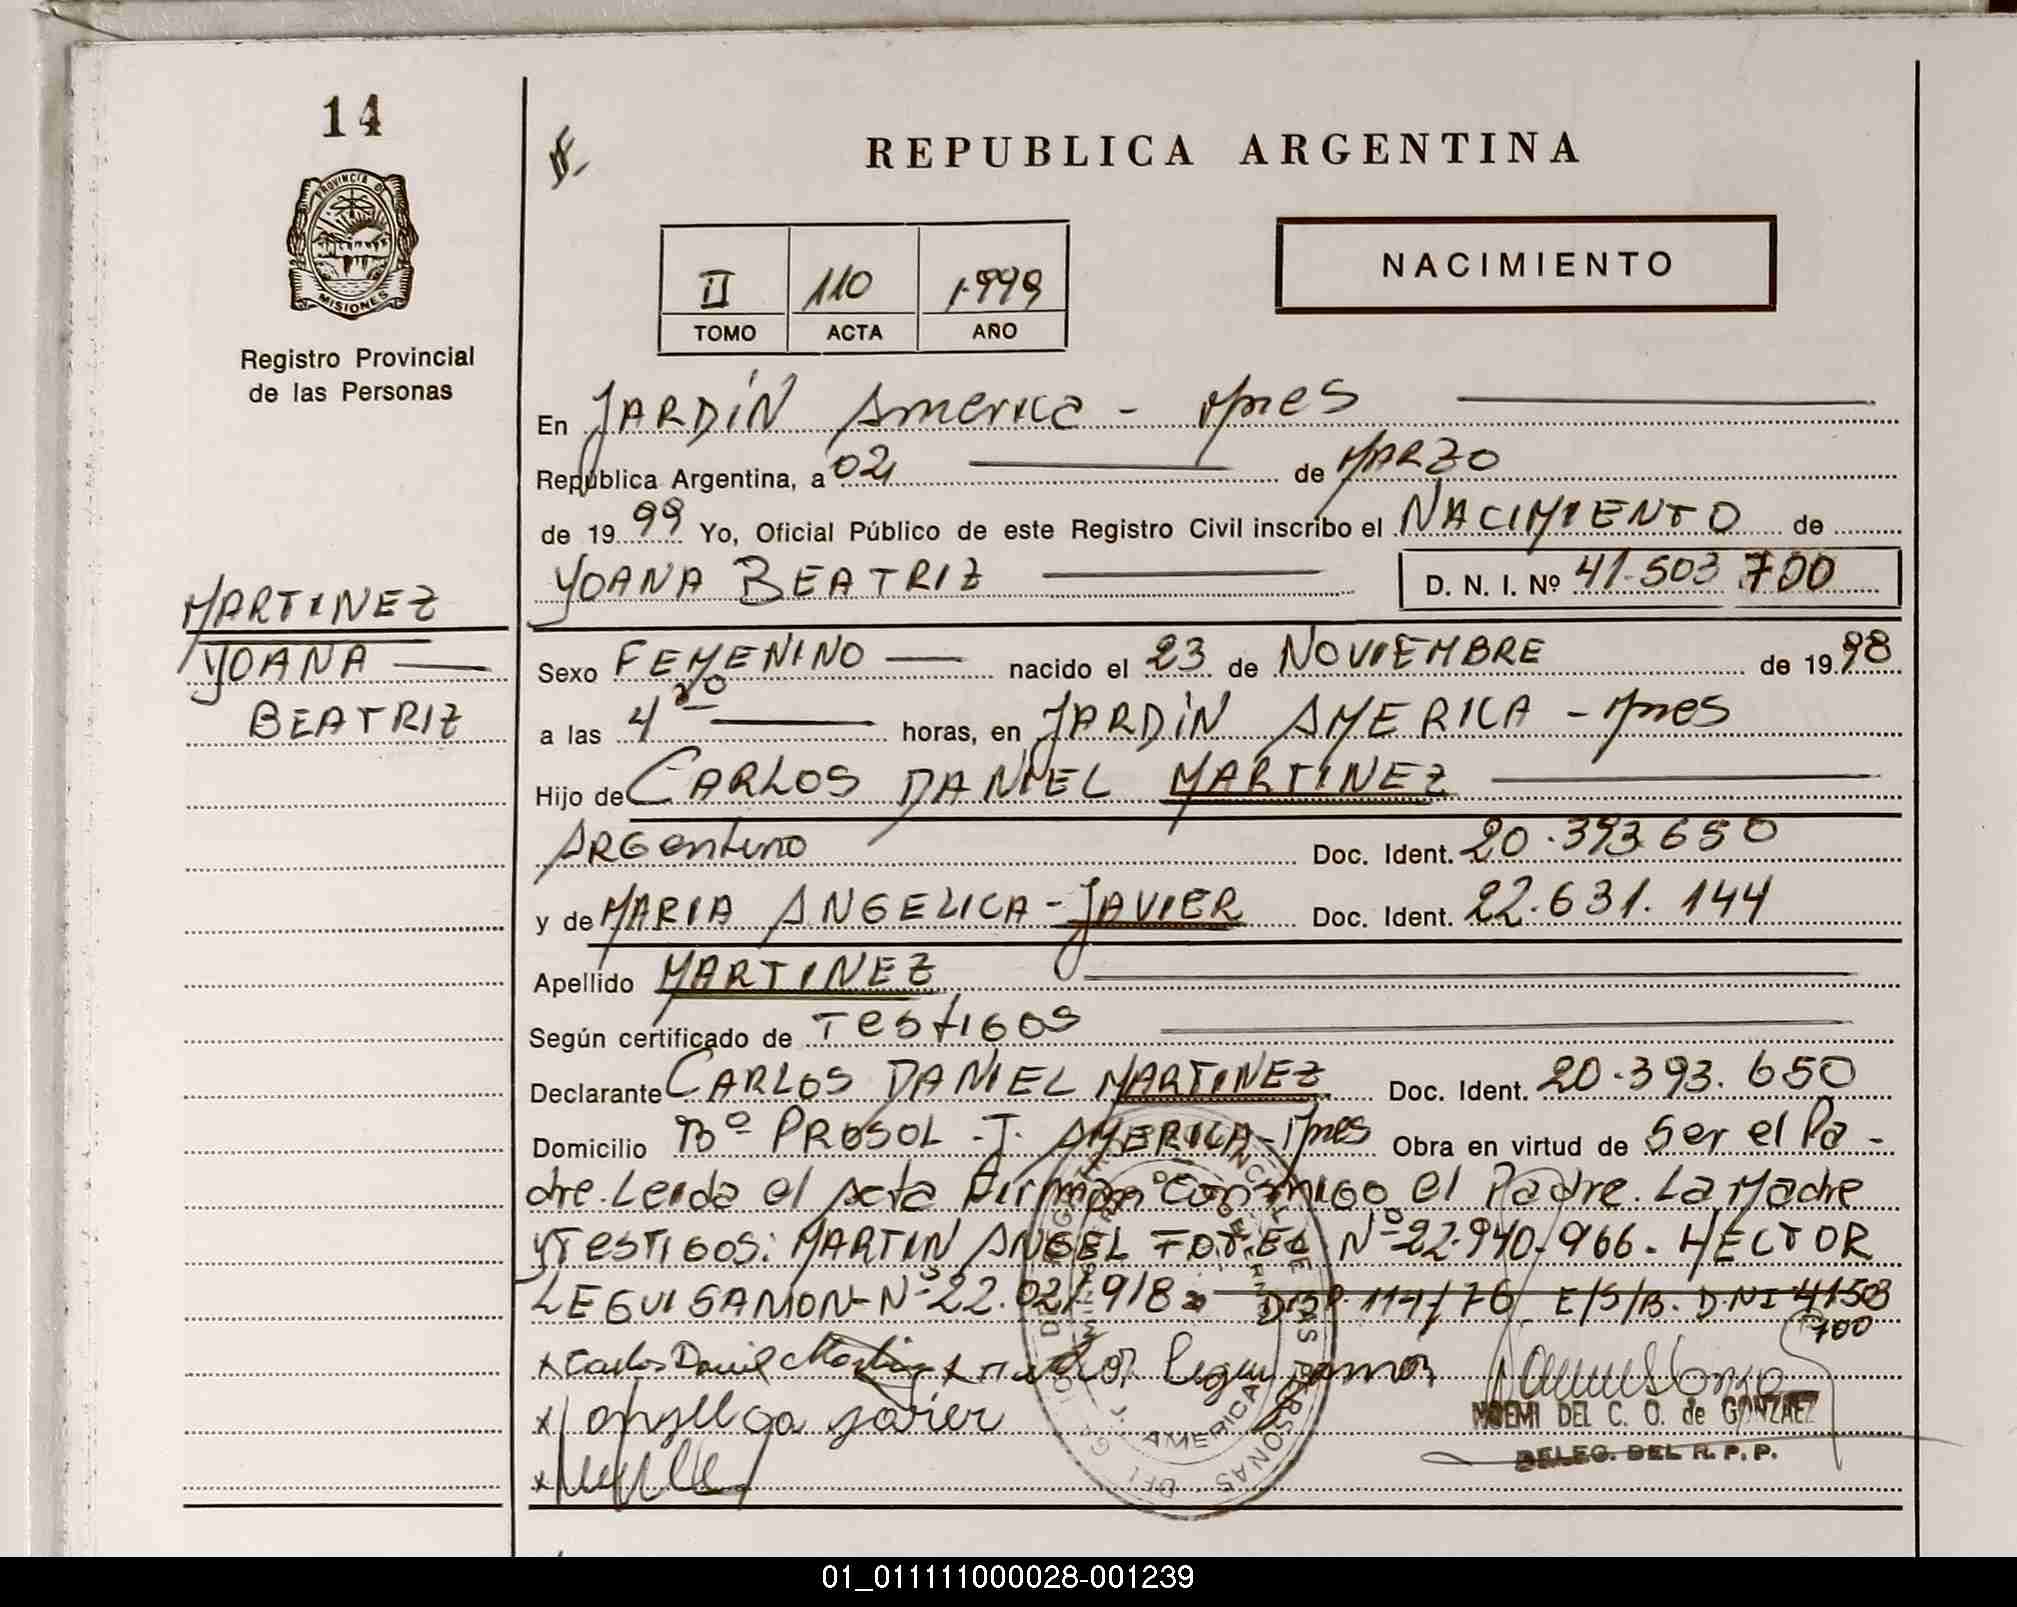 14
PROVINCIA DE
MISIONES
Registro Provincial
de las Personas
REPUBLICA ARGENTINA
II 110 1.999
TOMO ACTA AÑO
NACIMIENTO
En JARDIN America - Mnes
República Argentina, a 02 de MARZO
de 19 99 Yo, Oficial Público de este Registro Civil inscribo el NACIMIENTO de
YOANA BEATRIZ D. N. I. Nº 41.503 700
MARTINEZ
YOANA
BEATRIZ
Sexo FEMENINO nacido el 23 de NOVIEMBRE de 19 98
a las 4 20 horas, en JARDIN AMERICA - Mnes
Hijo de CARLOS DANIEL MARTINEZ
ARGentino Doc. Ident. 20.393.650
y de MARIA ANGELICA - JAVIER Doc. Ident. 22.631.144
Apellido MARTINEZ
Según certificado de Testigos
Declarante CARLOS DANIEL MARTINEZ Doc. Ident. 20.393.650
Domicilio Bº PROSOL - J. AMERICA - Mnes Obra en virtud de Ser el Pa-
dre. Leida el Acta Firman Conmigo el Padre. La Madre
y Testigos: MARTIN ANGEL Nº 22.940.966. HECTOR
LEGUISAMON - Nº 22.021.918 DISP. 117/76 E/S/B. D.N.I 41503
700
x Carlos Daniel Martinez x Leguisamon
x angelica javier
J. AMERICA
NOEMI DEL C. O. de GONZALEZ
DELEG. DEL R. P. P.
01_011111000028-001239